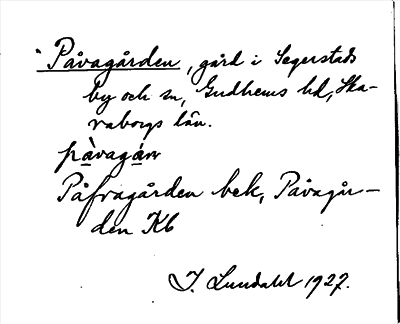 "Påvagården, gård i Segerstads
by och sn, Gudhems hd, Ska-
raborgs län.
pàvagárn
Påfvagården bek, Påvagår-
den Kb
J. Lundahl 1927.